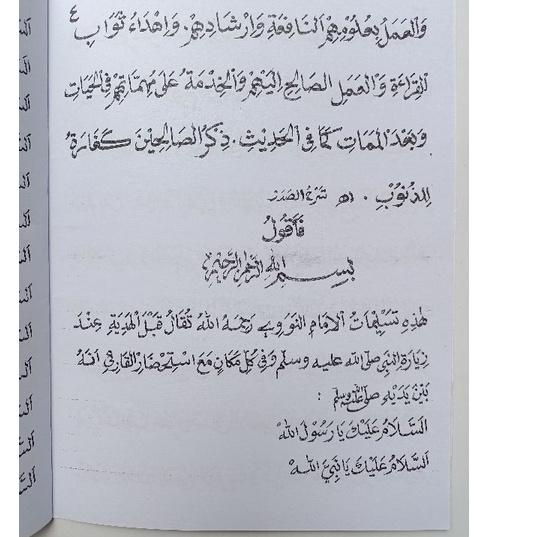 ٤
وَالْعَمَلُ بِعُلُوْمِهِمْ النَّافِعَةِ وَاِرْشَادِهِمْ. وَاِهْدَاءُ ثَوَابِ
الْقِرَاءَةِ وَالْعَمَلِ الصَّالِحِ اِلَيْهِمْ وَالْخِدْمَةُ عَلَى مُهِمَّاتِهِمْ فِى الْحَيَاتِ
وَبَعْدَ الْمَمَاتِ كَمَا فِى الْحَدِيْثِ. ذِكْرُ الصَّالِحِيْنَ كَفَارَةٌ
لِلذُّنُوْبِ. اه شَرْحُ الصَّدَرْ
فَاَقُوْلُ
بِسْــمِ اللهِ الرَّحْمٰنِ الرَّحِيْمِ
هٰذِهِ تَسْلِيْمَاتُ الْاِمَامِ النَّوَوِىِّ رَحِمَهُ اللهُ تُقَالُ قَبْلَ الْهَدِيَةِ عِنْدَ
زِيَارَةِ النَّبِىِّ صلى الله عليه وسلم وَفِى كُلِّ مَكَانٍ مَعَ اسْتِحْضَارِ الْقَارِئِ اَنَّهُ
بَيْنَ يَدَيْهِ صلى الله عليه وسلم :
اَلسَّلَامُ عَلَيْكَ يَا رَسُوْلَ اللهْ
اَلسَّلَامُ عَلَيْكَ يَا نَبِيَّ اللهْ